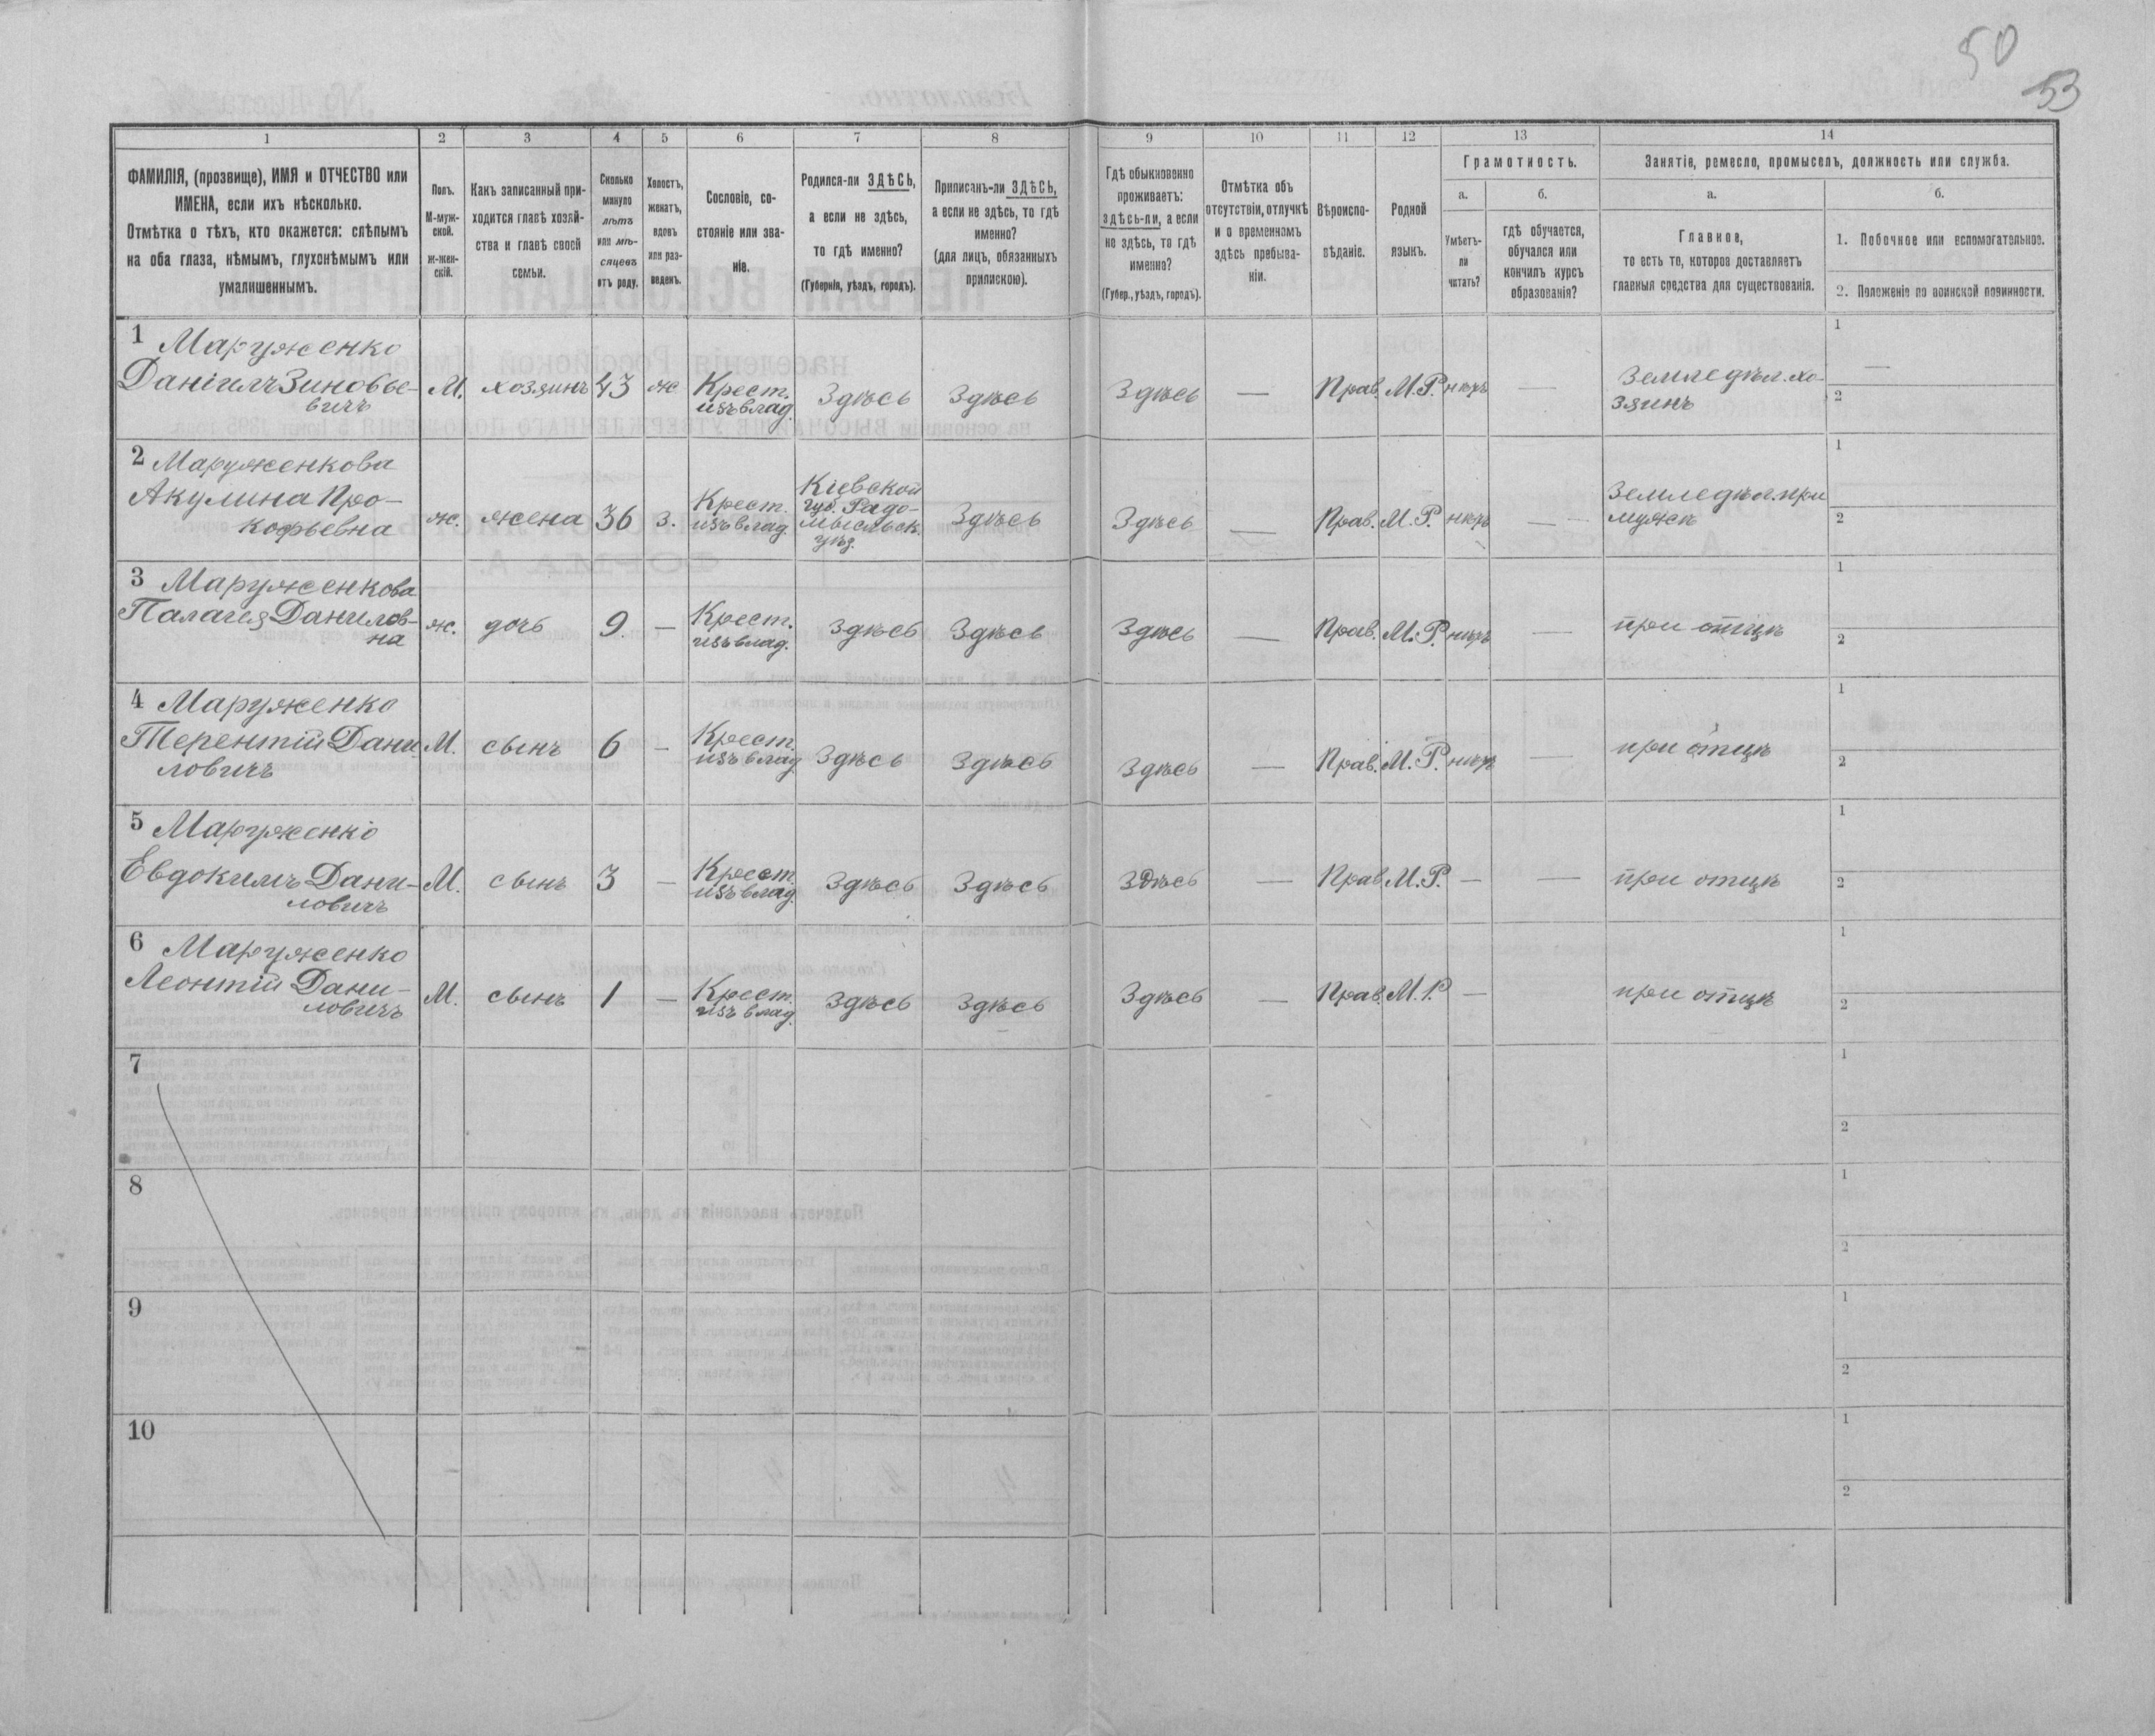 50
53
1
2
3
4
5
6
7
8
9
10
11
12
13
14
ФАМИЛІЯ, (прозвище), ИМЯ и ОТЧЕСТВО или
ИМЕНА, если ихъ нѣсколько.
Отмѣтка о тѣхъ, кто окажется: слѣпымъ
на оба глаза, нѣмымъ, глухонѣмымъ или
умалишеннымъ.
Полъ.
М-муж-
ской.
Ж-жен-
скій.
Какъ записанный при-
ходится главѣ хозяй-
ства и главѣ своей
семьи.
Сколько
минуло
лѣтъ
или мѣ-
сяцевъ
отъ роду.
Холостъ,
женатъ,
вдовъ
или раз-
веденъ.
Сословіе, со-
стояніе или зва-
ніе.
Родился-ли ЗДѢСЬ,
а если не здѣсь,
то гдѣ именно?
(Губернія, уѣздъ, городъ).
Приписанъ-ли ЗДѢСЬ,
а если не здѣсь, то гдѣ
именно?
(для лицъ, обязанныхъ
припискою).
Гдѣ обыкновенно
проживаетъ:
здѣсь-ли, а если
не здѣсь, то гдѣ
именно?
(Губер., уѣздъ, городъ).
Отмѣтка объ
отсутствіи, отлучкѣ
и о временномъ
здѣсь пребыва-
ніи.
Вѣроиспо-
вѣданіе.
Родной
языкъ.
Грамотность.
а.
Умѣетъ-
ли
читать?
б.
гдѣ обучается,
обучался или
кончилъ курсъ
образованія?
Занятіе, ремесло, промыселъ, должность или служба.
а.
Главное,
то есть то, которое доставляетъ
главныя средства для существованія.
б.
1. Побочное или вспомогательное.
2. Положеніе по воинской повинности.
1 Маруженко
Даніилъ Зиновье-
вичъ
М.
хозяинъ
43
ж
Крест.
изъ влад.
Здѣсь
Здѣсь
Здѣсь
—
Прав.
М.Р.
нѣтъ
—
Земледѣл. хо-
зяинъ
1
—
2
2 Маруженкова
Акулина Про-
кофьевна
ж.
жена
36
з.
Крест.
изъ влад.
Кіевской
губ. Радо-
мысльск.
уѣз.
Здѣсь
Здѣсь
—
Прав.
М.Р.
нѣтъ
—
Земледѣл. при
мужѣ
1
2
3 Маруженкова
Палагея Данилов-
на
ж.
дочь
9.
—
Крест.
изъ влад.
Здѣсь
Здѣсь
Здѣсь
—
Прав.
М.Р.
нѣтъ
—
при отцѣ
1
2
4 Маруженко
Терентій Дани-
ловичъ
М.
сынъ
6
—
Крест.
изъ влад.
Здѣсь
Здѣсь
Здѣсь
—
Прав.
М.Р.
нѣтъ
—
при отцѣ
1
2
5 Маруженко
Евдокимъ Дани-
ловичъ
М.
сынъ
3
—
Крест.
изъ влад.
Здѣсь
Здѣсь
Здѣсь
—
Прав.
М.Р.
—
—
при отцѣ
1
2
6 Маруженко
Леонтій Дани-
ловичъ
М.
сынъ
1
—
Крест.
изъ влад.
Здѣсь
Здѣсь
Здѣсь
—
Прав.
М.Р.
—
при отцѣ
1
2
7
1
2
8
1
2
9
1
2
10
1
2